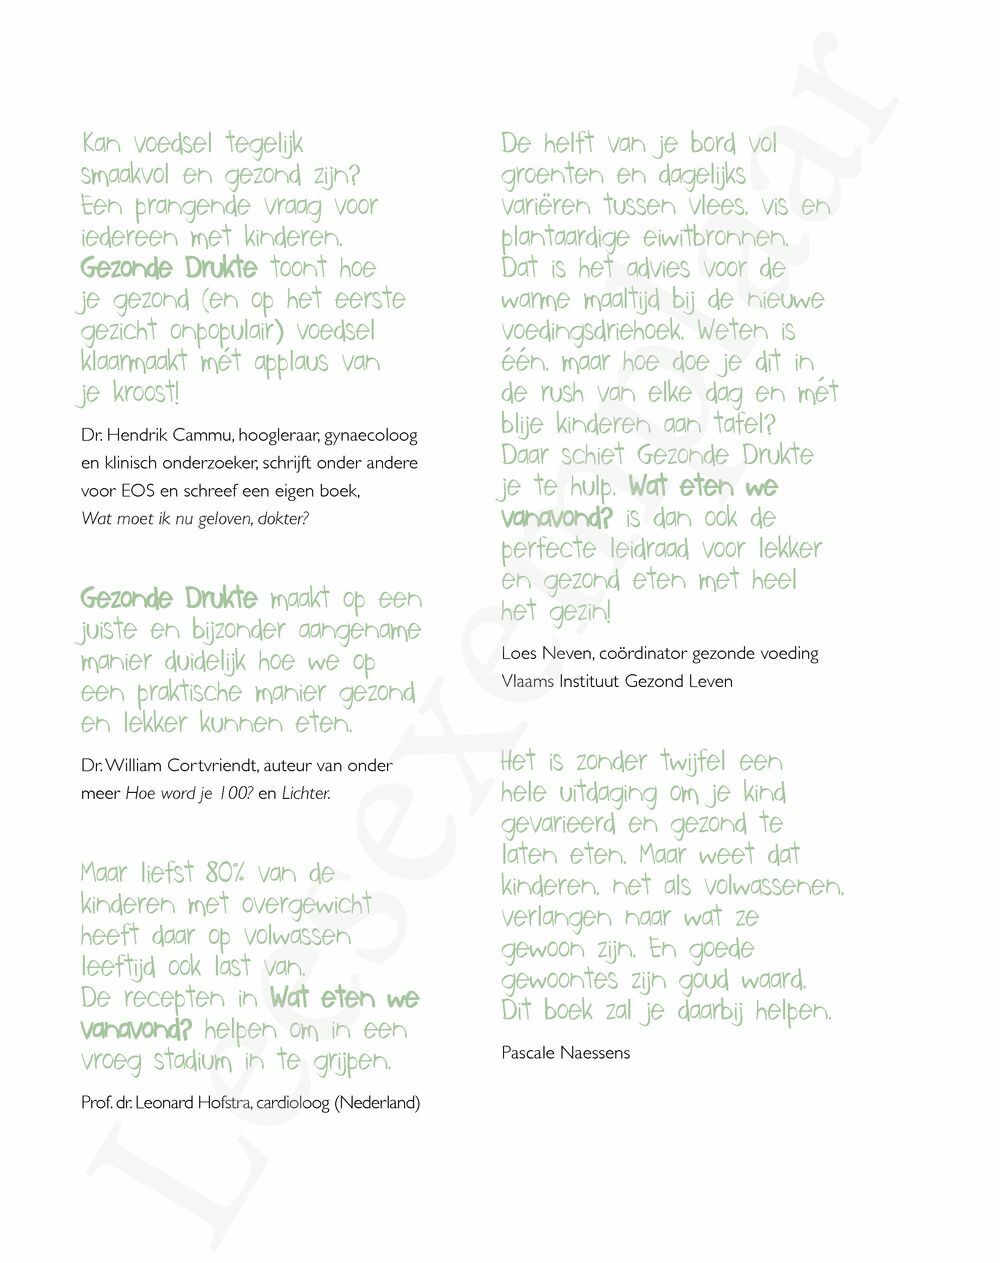 Kan voedsel tegelijk
smaakvol en gezond zijn?
Een prangende vraag voor
iedereen met kinderen.
Gezonde Drukte toont hoe
je gezond (en op het eerste
gezicht onpopulair) voedsel
klaarmaakt mét applaus van
je kroost!
Dr. Hendrik Cammu, hoogleraar, gynaecoloog
en klinisch onderzoeker, schrijft onder andere
voor EOS en schreef een eigen boek,
Wat moet ik nu geloven, dokter?
Gezonde Drukte maakt op een
juiste en bijzonder aangename
manier duidelijk hoe we op
een praktische manier gezond
en lekker kunnen eten.
Dr. William Cortvriendt, auteur van onder
meer Hoe word je 100? en Lichter.
Maar liefst 80% van de
kinderen met overgewicht
heeft daar op volwassen
leeftijd ook last van.
De recepten in Wat eten we
vanavond? helpen om in een
vroeg stadium in te grijpen.
Prof. dr. Leonard Hofstra, cardioloog (Nederland)
De helft van je bord vol
groenten en dagelijks
variëren tussen vlees, vis en
plantaardige eiwitbronnen.
Dat is het advies voor de
warme maaltijd bij de nieuwe
voedingsdriehoek. Weten is
één, maar hoe doe je dit in
de rush van elke dag en mét
blije kinderen aan tafel?
Daar schiet Gezonde Drukte
je te hulp. Wat eten we
vanavond? is dan ook de
perfecte leidraad voor lekker
en gezond eten met heel
het gezin!
Loes Neven, coördinator gezonde voeding
Vlaams Instituut Gezond Leven
Het is zonder twijfel een
hele uitdaging om je kind
gevarieerd en gezond te
laten eten. Maar weet dat
kinderen, net als volwassenen,
verlangen naar wat ze
gewoon zijn. En goede
gewoontes zijn goud waard.
Dit boek zal je daarbij helpen.
Pascale Naessens
Leesexemplaar